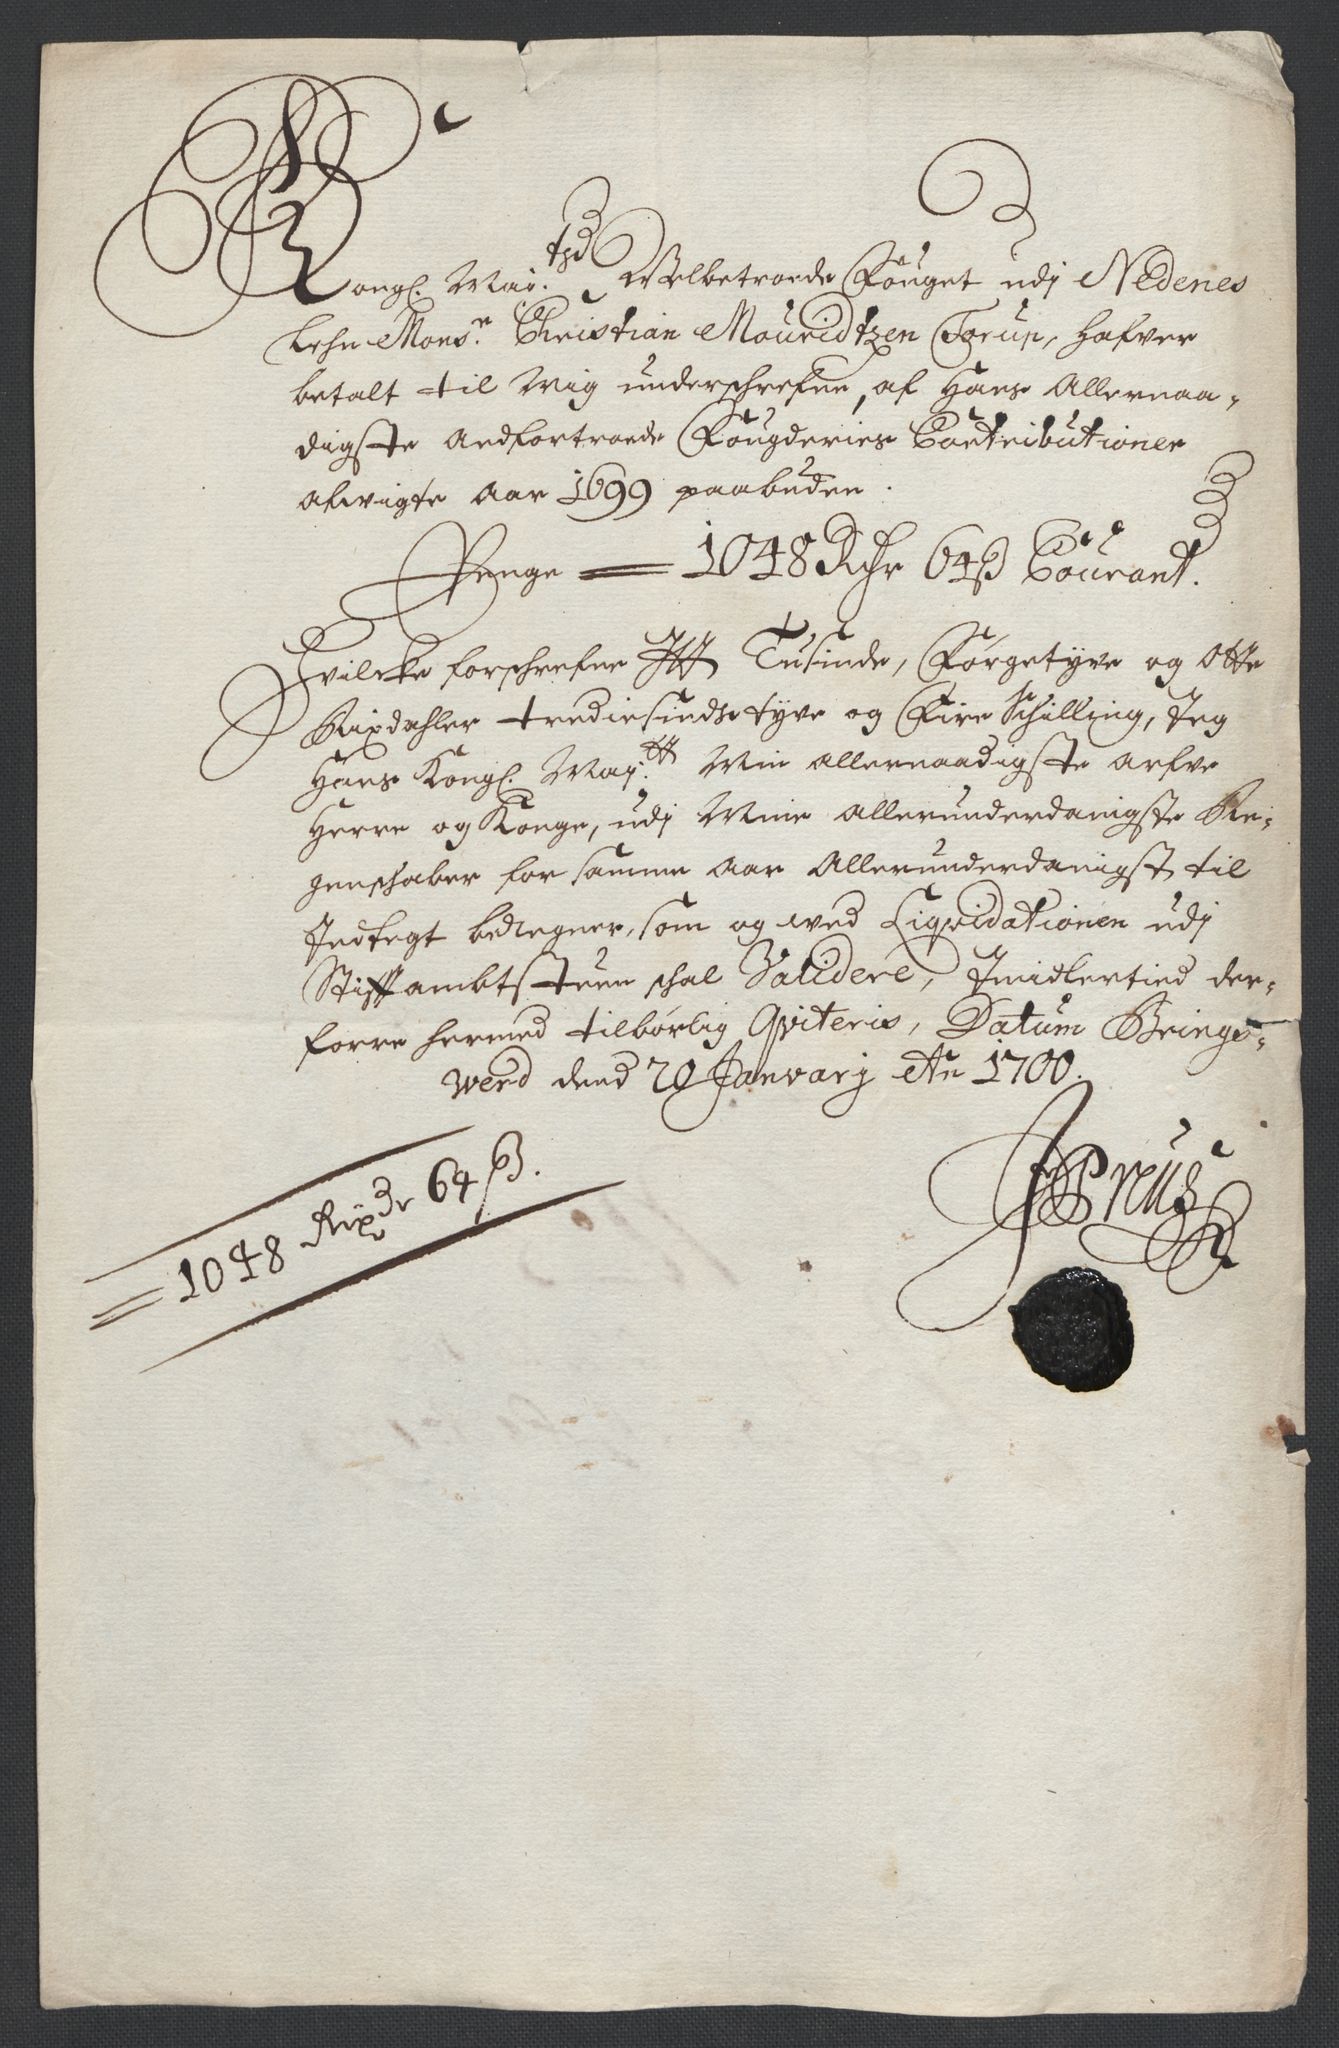 Kongl. Maij.tzs Velbetroede Fouget udj Nedenes
Lehn Mons.r Christian Mouridtzen Torup, hafver
betalt til Mig underschrefne, af Hans Allernaa-
digste Anfortroede Fougderies Contributioner
afvigte Aar 1699 paabuden.
Penge = 1048 Rdr 64 ß Courant.
Hvilcke forschrefne Itt Tusinde, Førgetyve og Otte
Rixdahler trediesindstyve og Fire Schilling, Jeg
Hans Kongl. May.tt Min allernaadigste Arfve
Herre og Konge, udj Mine Allerunderdanigste Re-
genschaber for samme Aar Allerunderdanigst til
Indtegt beregner, som og wed Liqvidationen udj
Stiftambtstuen schal Validere, Imidlertied der-
forre hermed tilbørlig Qviteris, Datum Brings-
werd dend 20 Janvarij Ao 1700.
JPreus
= 1048 Rixdr 64 ß.